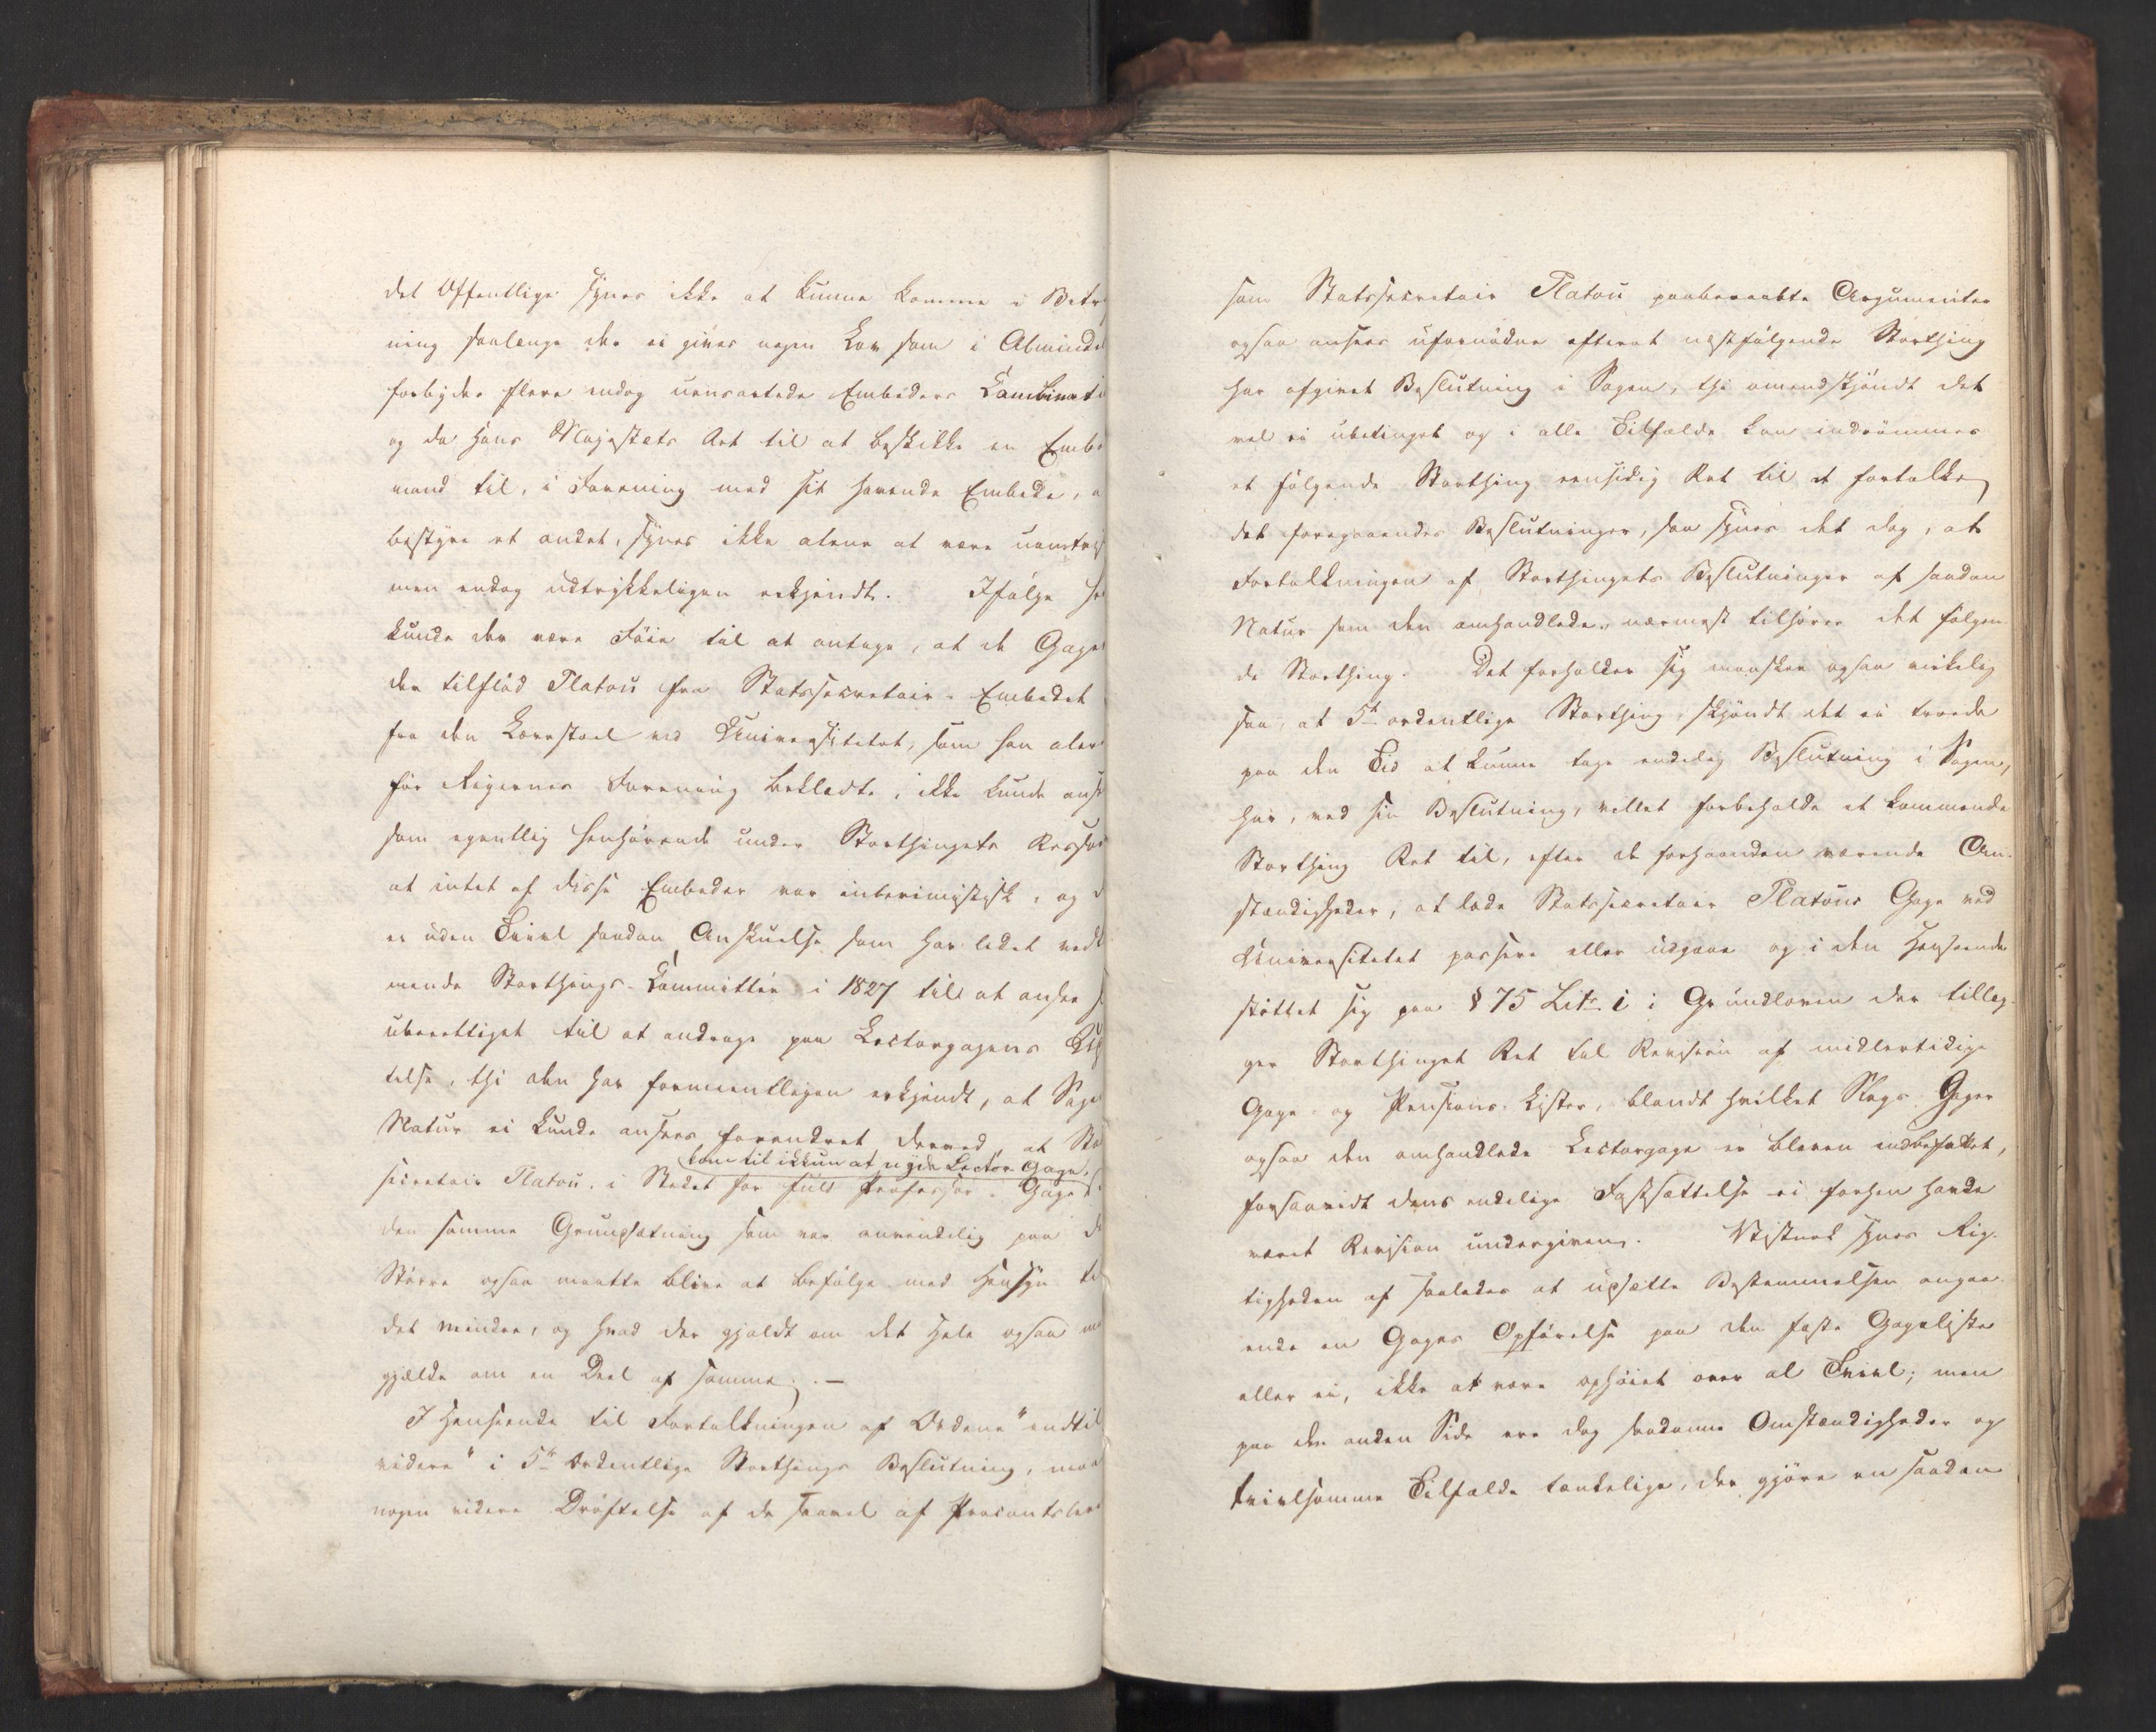 det Offentlige synes ikke at kunne komme i Betr
ning saalænge der ei gives nogen Lov som i Alminde
forbyder flere endog ueensartede Embeders Combinati
og da Hans Majestæts Ret til at beskikke en Embe
mand til, i Forening med sit havende Embede, a
bestyre et andet, synes ikke alene at være uomtvis
men endog udtrykkeligen erkjendt. Ifølge he
kunde der være Føie til at antage, at de Gage
der tilflød Platou fra Statssecretair-Embedet
fra den Lærestoel ved Universitetet, som han aler
før Rigernes Forening beklædte, ikke kunde anse
som egentlig henhørende under Storthingets Ressor
at intet af disse Embeder var interimistisk, og d
er uden Tvivl saadan Anskuelse som har ledet vedk
mende Storthings-Committée i 1827 til at ansee s
uberettiget til at andrage paa Lectorgagens
telse, thi den har formeentligen erkjendt, at Sage
Natur ei kunde ansees forandret derved, at Sta
kom til ikkun at nyde Lector Gage,
secretair Platou, i Stedet for fuld Professor-Gage
den samme Grundsætning som var anvendelig paa d
Større ogsaa maatte blive at befølge med Hensyn ti
det mindre, og hvad der gjaldt om det Hele ogsaa m
gjælde om en Deel af samme. —
I Henseende til Fortolkningen af Ordene "indtil
videre" i 5te ordentlige Storthings Beslutning, maa
nogen videre Drøftelse af de saavel af Procantsler
som Statssecretair Platou paaberaabte Argumenter
ogsaa ansees ufornøden efterat næstfølgende Storthing
har afgivet Beslutning i Sagen, thi omendskjøndt det
vel ei ubetinget og i alle Tilfælde kan indrømmes
et følgende Storthing eensidig Ret til at fortolke
det foregaaendes Beslutninger, saa synes det dog, at
Fortolkningen af Storthingets Beslutninger af saadan
Natur som den omhandlede, nærmest tilhører det følgen
de Storthing. Det forholder sig maaskee ogsaa virkelig
saa, at 5te ordentlige Storthing, skjøndt det ei troede
paa den Tid at kunne tage endelig Beslutning i Sagen,
har, ved sin Beslutning, villet forbeholde et kommende
Storthing Ret til, efter de forhaanden værende Om-
stændigheder, at lade Statssecretair Platous Gage ved
Universitetet passere eller udgaae og i den Henseende
støttet sig paa § 75 Litr i i Grundloven der tillæg-
ger Storthinget Ret til Revision af midlertidige
Gage- og Pensions-Lister, blandt hvilket Slags Gager
ogsaa den omhandlede Lectorgage er bleven indbefattet,
forsaavidt dens endelige Fastsættelse ei forhen havde
været Revision undergiven. Vistnok synes Rig-
tigheden af saaledes at udsætte Bestemmelsen angaa-
ende en Gages Opførelse paa den faste Gageliste
eller ei, ikke at være ophøiet over al Tvivl; men
paa den anden Side ere dog saadanne Omstændigheder og
tvivlsomme Tilfælde tænkelige, der gjøre en saadan